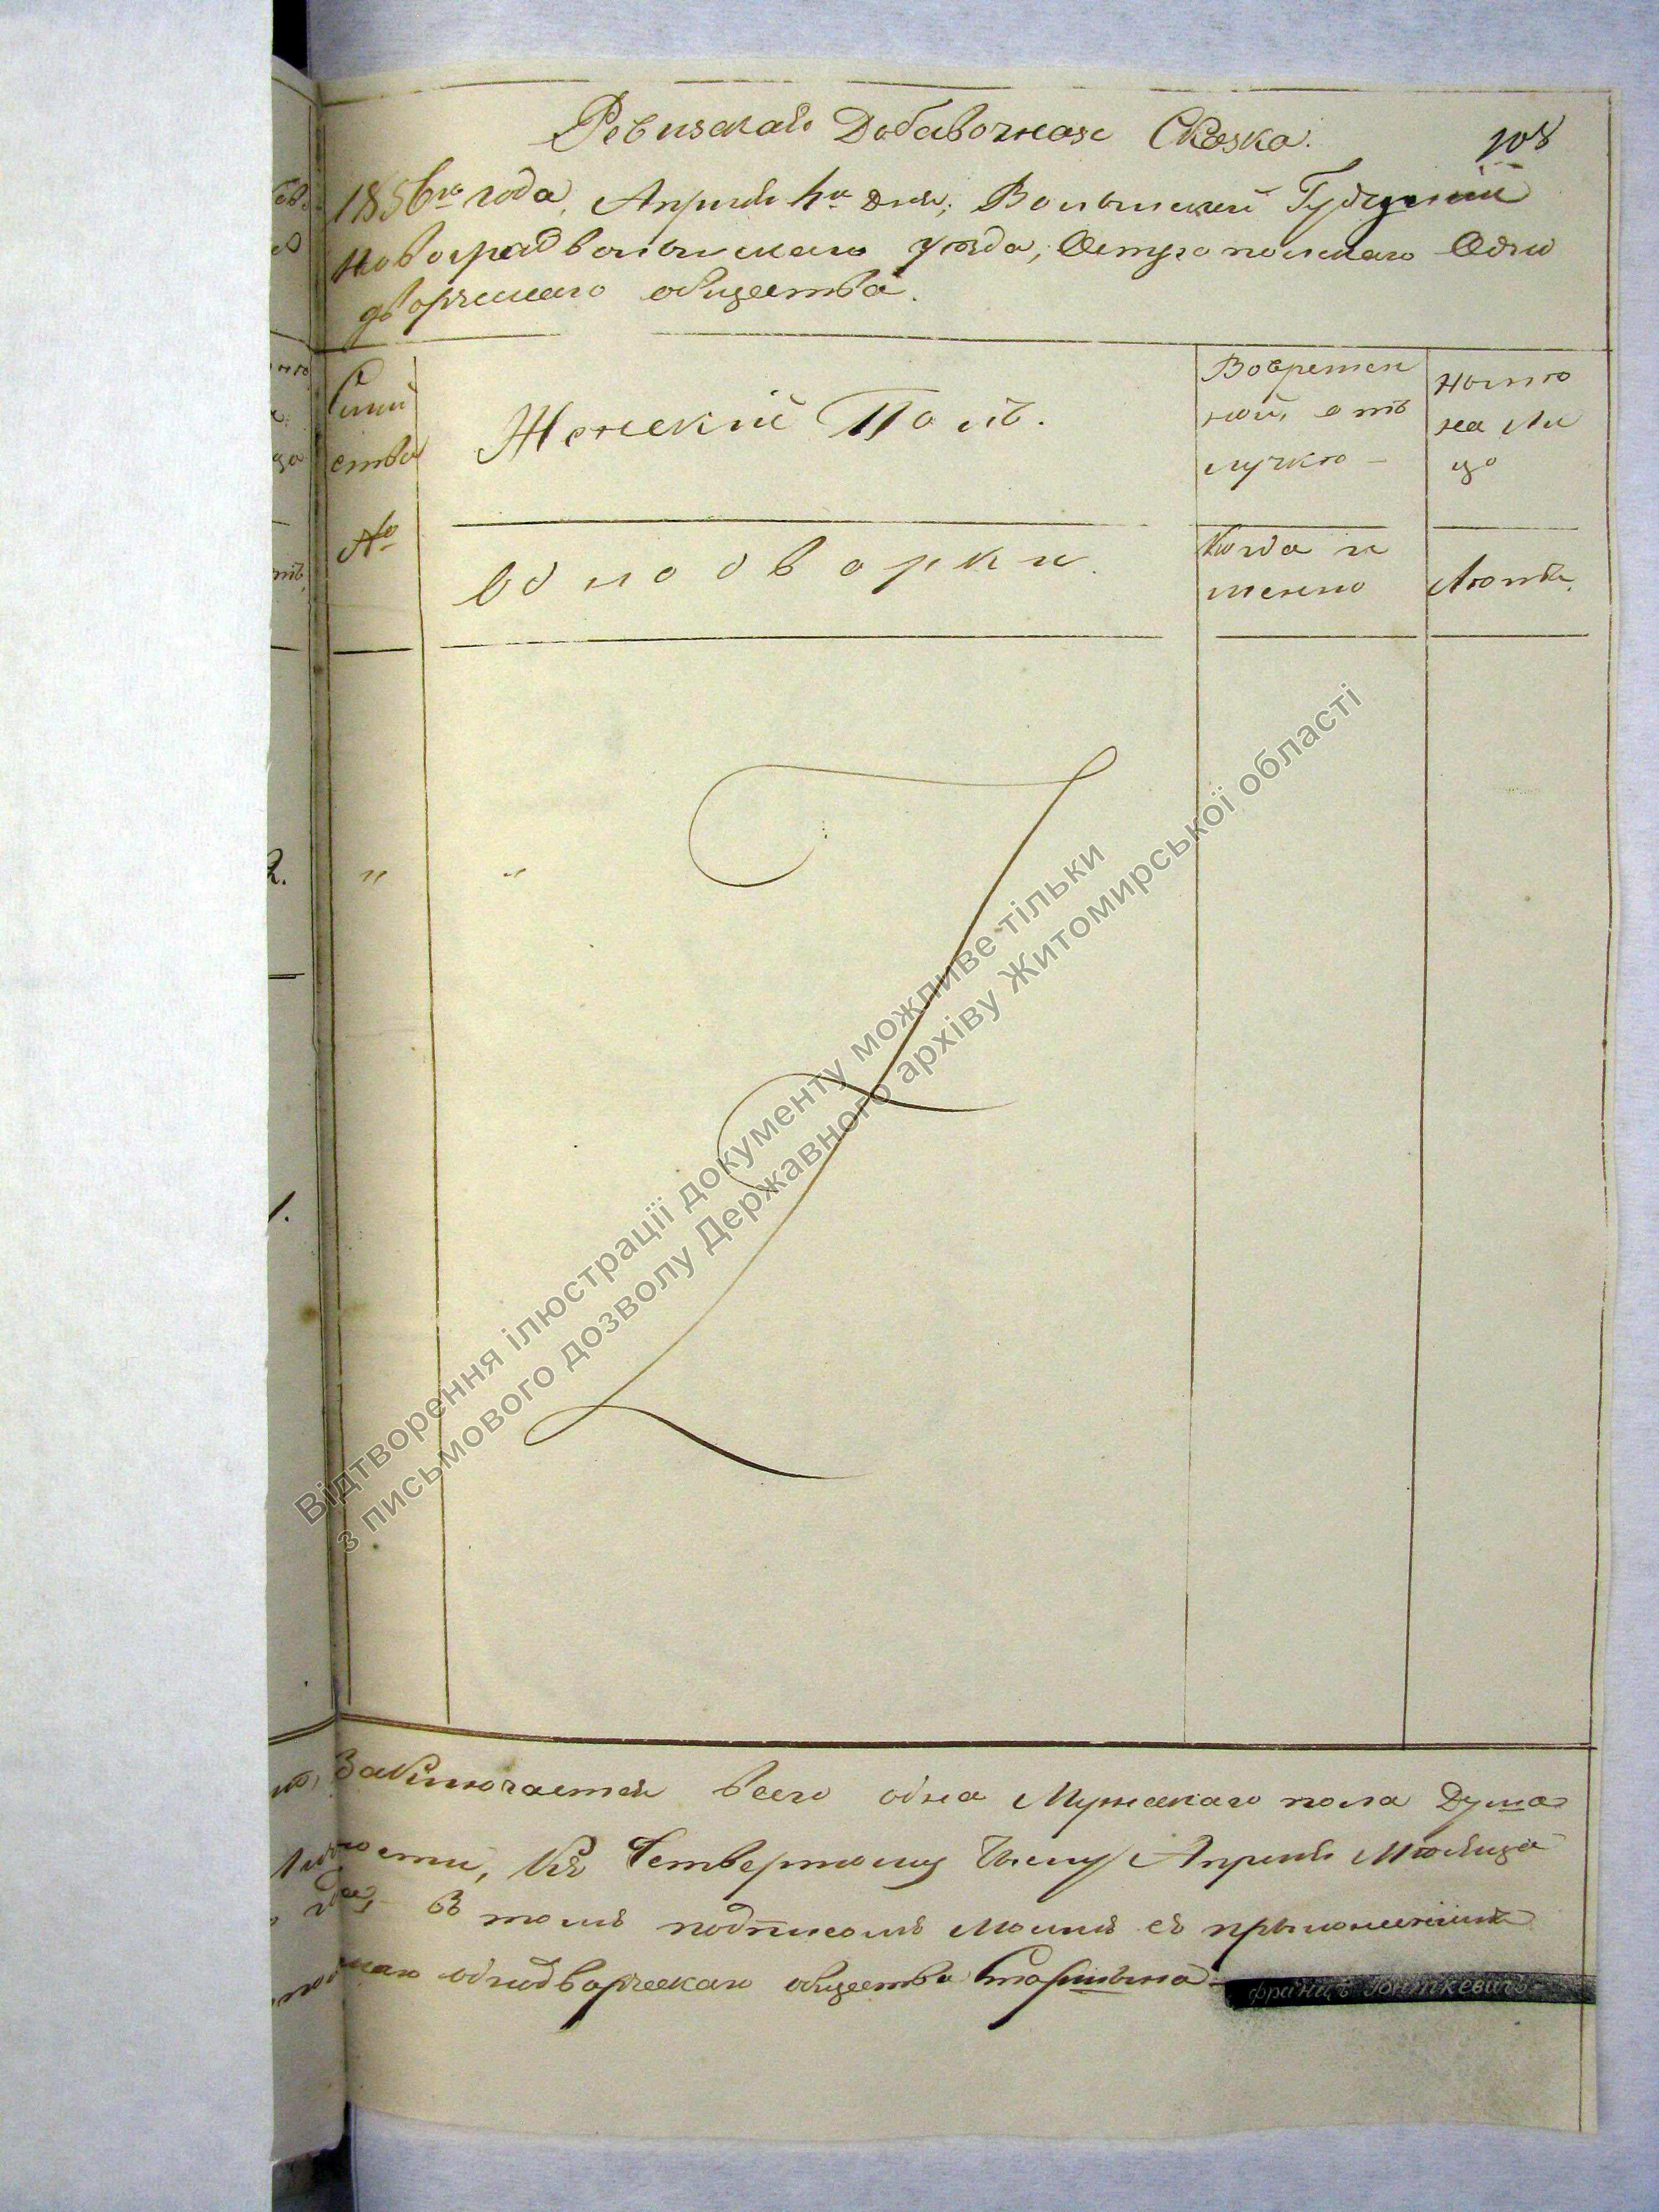 Ревизская Добавочная Сказка.
108
1856го года, Апреля 4го дня, Волынской Губерніи
Новоградволынскаго уѣзда, Остропольскаго Одно
дворческаго общества.
Семей
ства
№
Женскій Полъ.
Однодворки.
Во времен
ной от
лучкѣ –
Когда и
менно
Нынѣ
на Ли
цо
Лѣта.
"
"
Заключается всего одна Мужескаго пола Душа
ности, Къ Четвертому Числу Апреля Мѣсяца
В томъ подписомъ моимъ съ приложеніемъ
однодворческаго общества Старшина
Францъ Гонткевичъ
Відтворення ілюстрації документу можливе тільки
з письмового дозволу Державного архіву Житомирської області